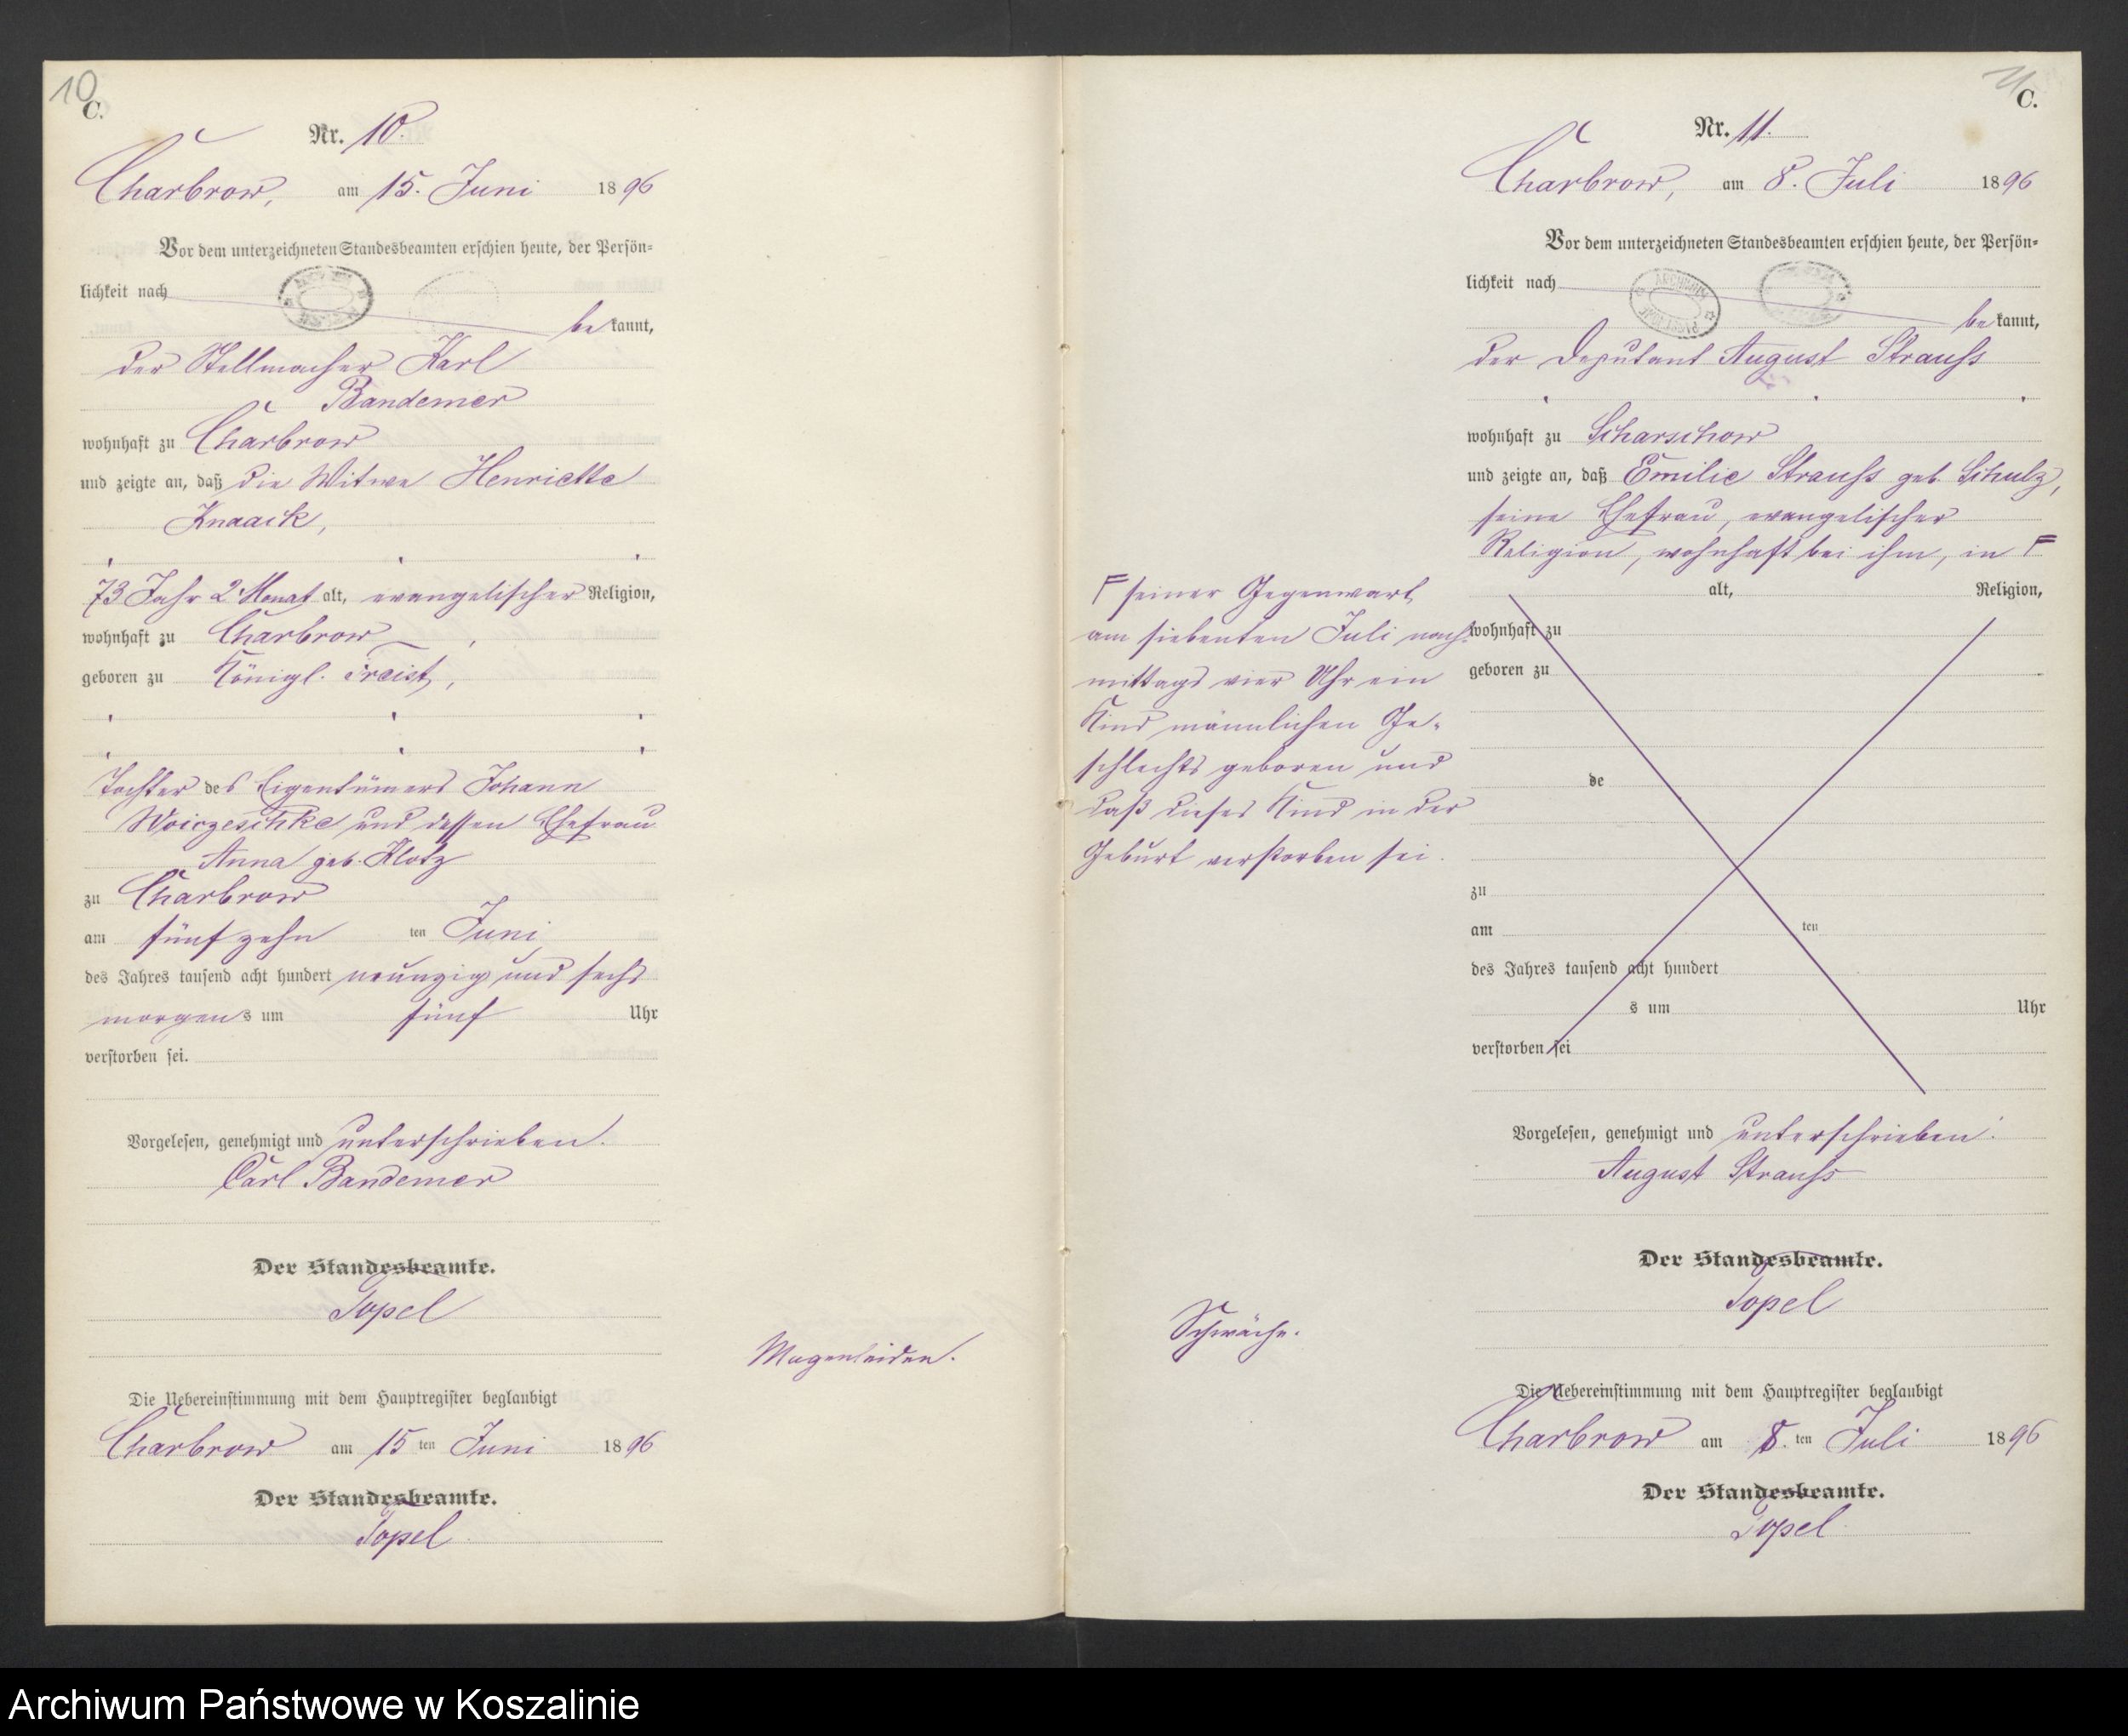 10
C.
Nr. 10.
Charbrow, am 15. Juni 1896
Vor dem unterzeichneten Standesbeamten erschien heute, der Persön-
lichkeit nach
bekannt,
der Stellmacher Karl
Bandemer
wohnhaft zu Charbrow
und zeigte an, daß die Witwe Henriette
Knaack,
73 Jahr 2 Monat alt, evangelischer Religion,
wohnhaft zu Charbrow,
geboren zu Königl. Freist,
Tochter des Eigentümers Johann
Woiczeschke und dessen Ehefrau
Anna geb. Klotz
zu Charbrow
am fünfzehn ten Juni
des Jahres tausend acht hundert neunzig und sechs
morgens um fünf Uhr
verstorben sei.
Vorgelesen, genehmigt und unterschrieben.
Carl Bandemer
Der Standesbeamte.
Topel
Magenleiden.
Die Uebereinstimmung mit dem Hauptregister beglaubigt
Charbrow am 15 ten Juni 1896
Der Standesbeamte.
Topel
11
C.
Nr. 11.
Charbrow, am 8. Juli 1896
Vor dem unterzeichneten Standesbeamten erschien heute, der Persön-
lichkeit nach
bekannt,
der Deputant August Strauss
wohnhaft zu Scharschow
und zeigte an, daß Emilie Strauss geb. Schulz,
seine Ehefrau, evangelischer
Religion, wohnhaft bei ihm, in F
F seiner Gegenwart
am siebenten Juli nach-
mittags vier Uhr ein
Kind männlichen Ge-
schlechts geboren und
daß dieses Kind in der
Geburt verstorben sei.
alt, Religion,
wohnhaft zu
geboren zu
de
zu
am ten
des Jahres tausend acht hundert
s um Uhr
verstorben sei
Vorgelesen, genehmigt und unterschrieben.
August Strauss
Der Standesbeamte.
Topel
Schwäche.
Die Uebereinstimmung mit dem Hauptregister beglaubigt
Charbrow am 8. ten Juli 1896
Der Standesbeamte.
Topel
Archiwum Państwowe w Koszalinie